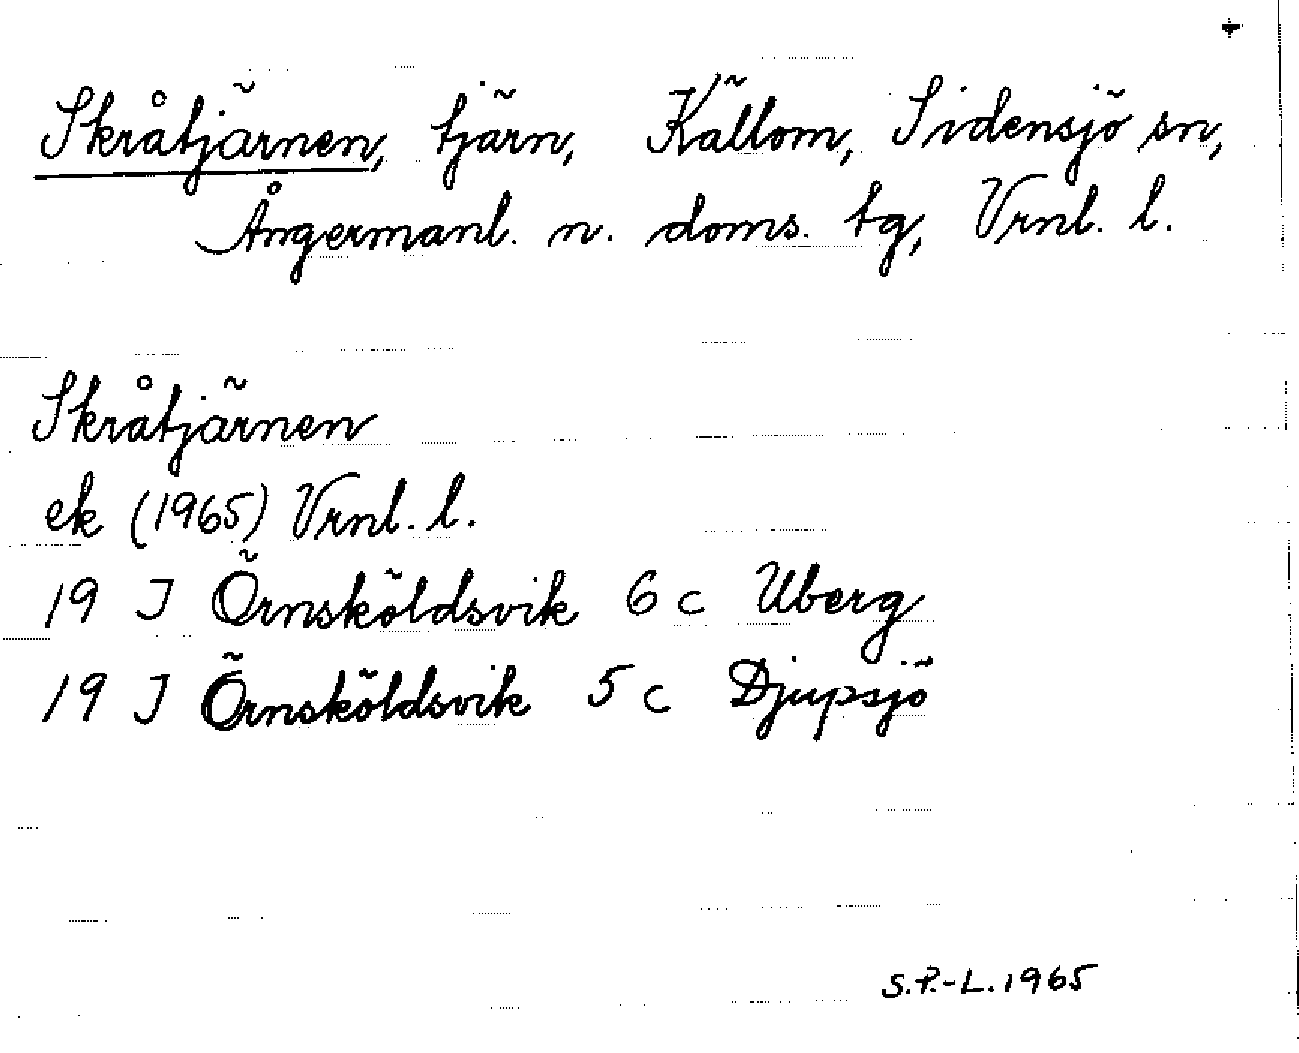 Skråtjärnen, tjärn, Källom, Sidensjö sn,
Ångermanl. n. doms. tg, Vrnl. l.
Skråtjärnen
ek (1965) Vrnl. l.
19 J Örnsköldsvik 6 c Uberg
19 J Örnsköldsvik 5 c Djupsjö
S.P.-L. 1965